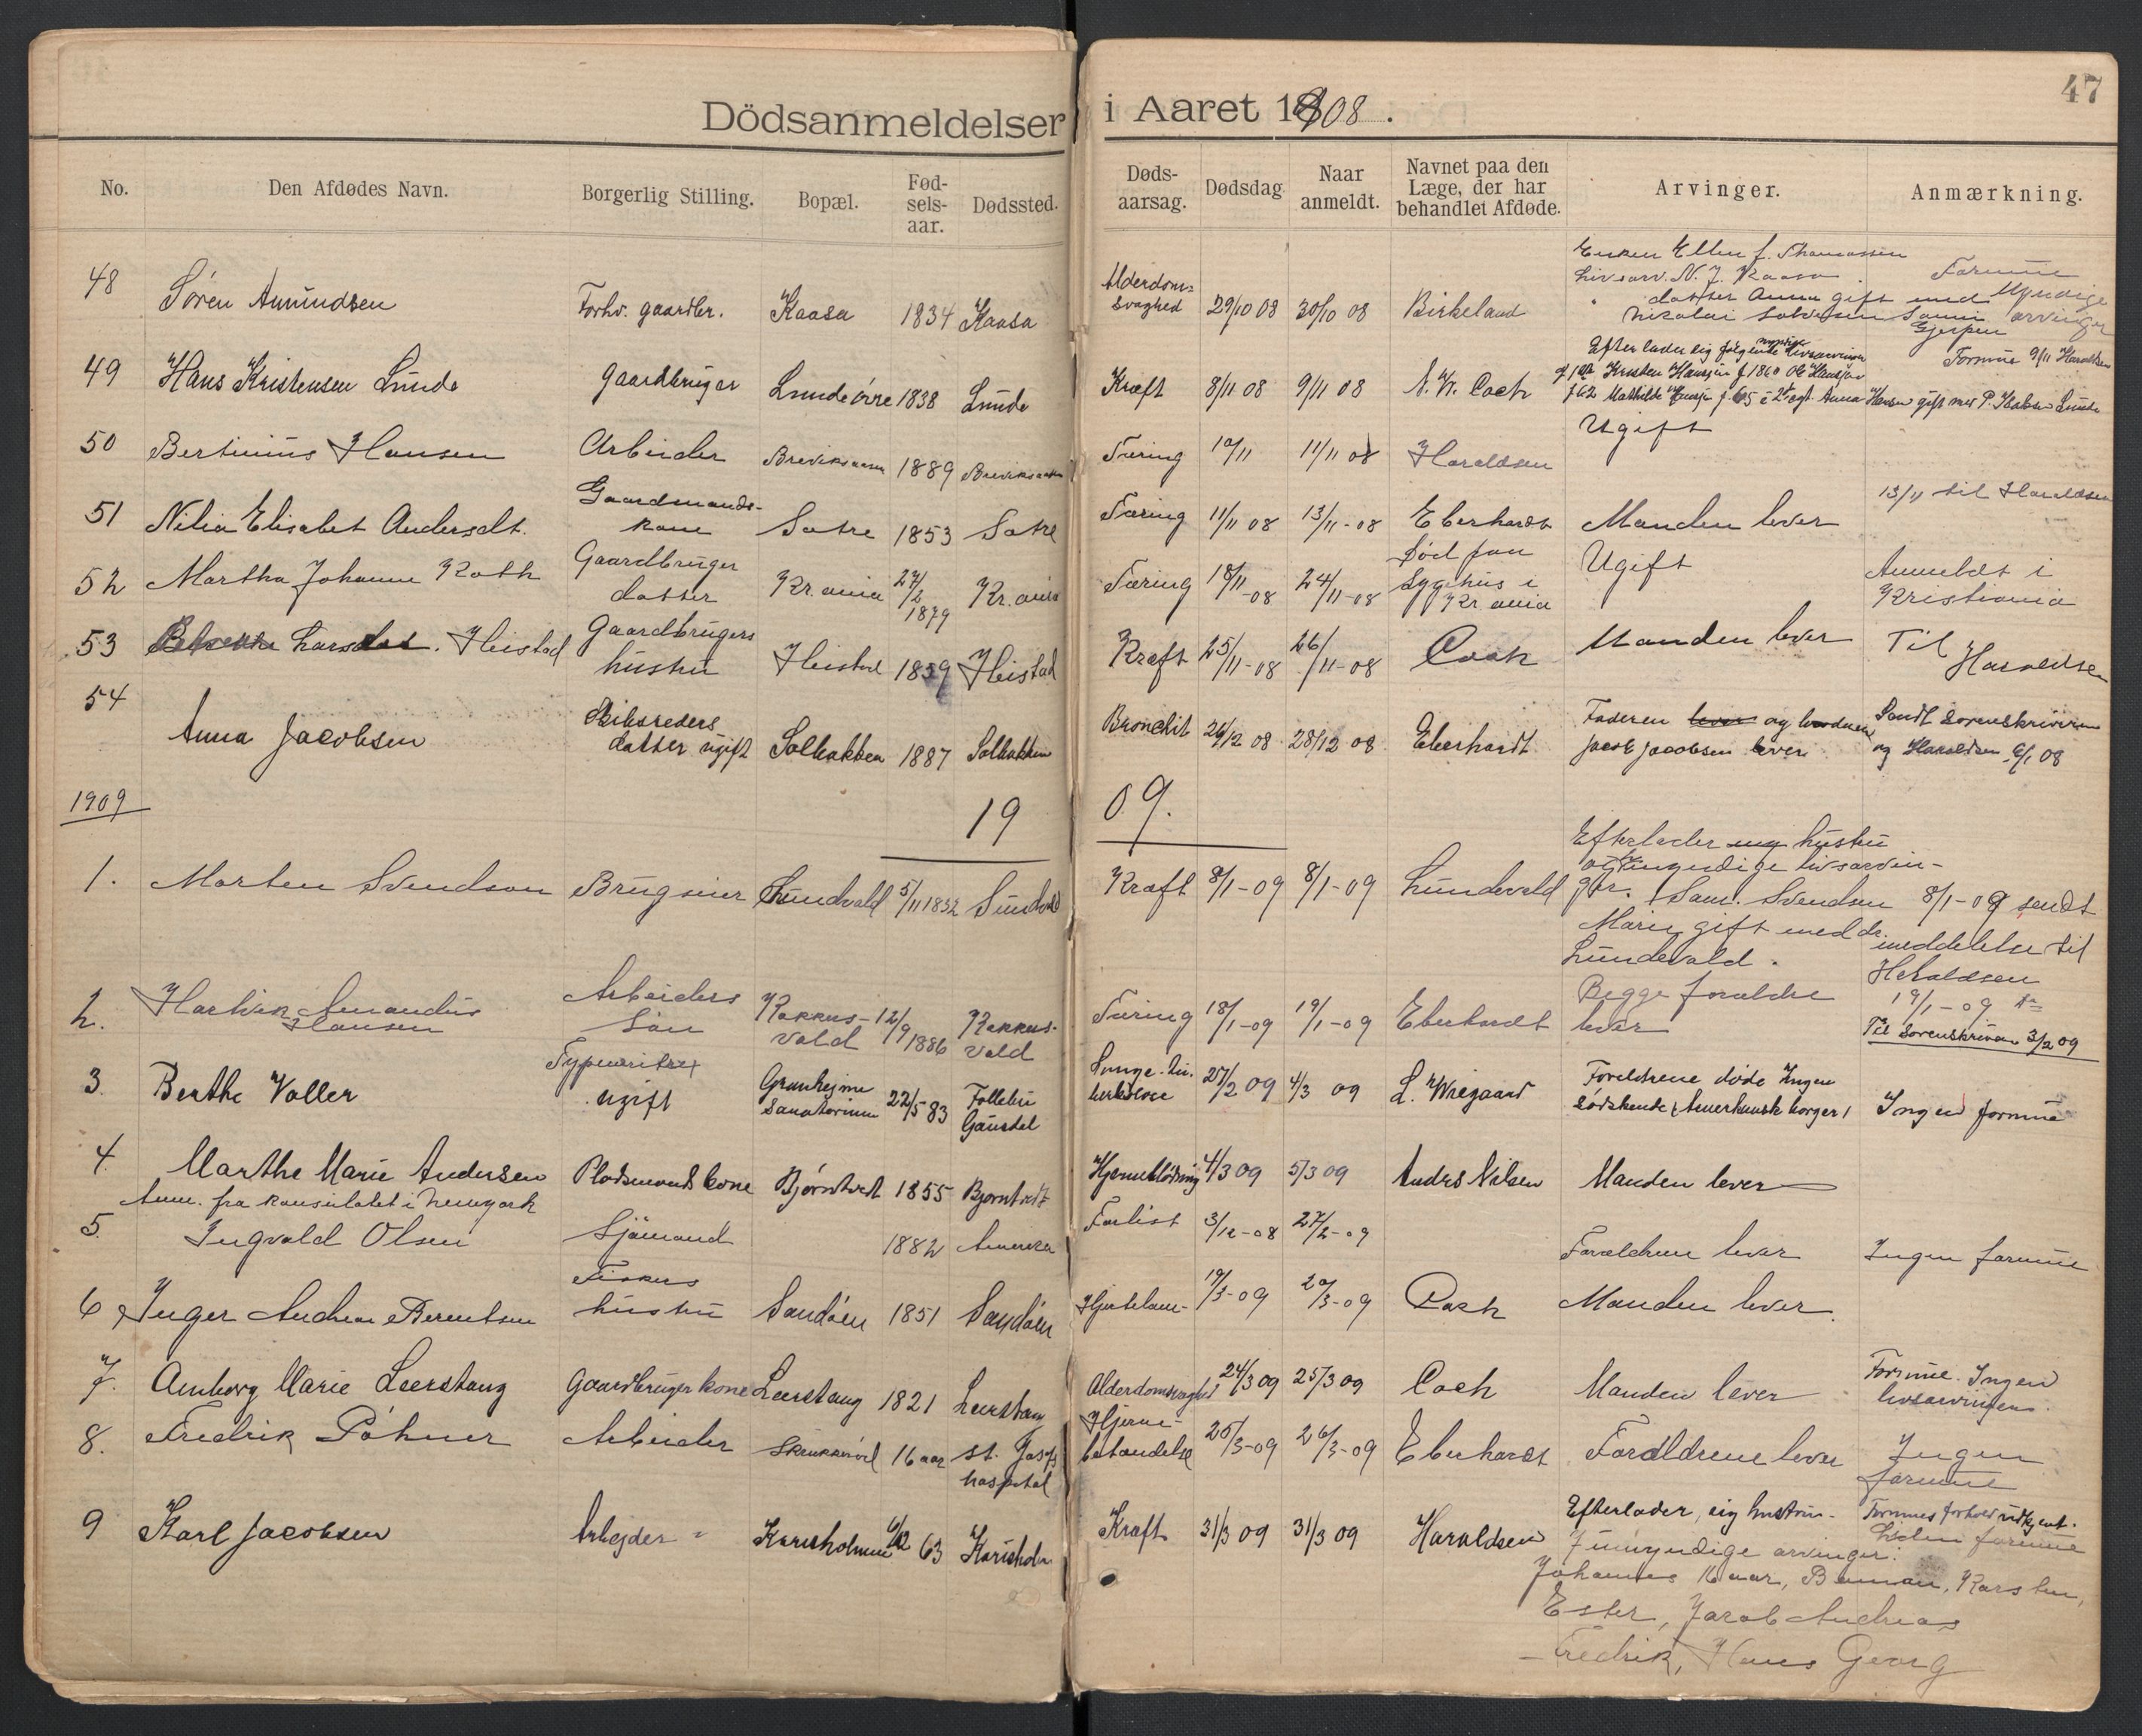 47
Dödsanmeldelser i Aaret 1908.
No. Den Afdødes Navn. Borgerlig Stilling. Bopæl. Fød- sels- aar. Dødssted. Døds- aarsag. Dødsdag Naar anmeldt. Navnet paa den Læge, der har behandlet Afdøde. Arvinger. Anmærkning.
Enken Ellen f. Thomassen
Livsarv. N. J. Kaasa Formue
48 Søren Amundsen Forhv. gaardbr. Kaasa 1834 Kaasa Alderdoms- svaghed 29/10 08 30/10 08 Birkeland
datter Anna gift med Myndige
Nikolai Solvesen arvinger
Gjerpen
49 Hans Kristensen Lunde gaardbruger Lundeörre 1838 Lunde Kræft 8/11 08 9/11 08 N. W. Coch
Efterlader sig følgende myndige livsarvinger Formue 9/11 Haraldsen
Kristen Hansen f. 1860 Ole Hansen
f 62 Mathilde Hansen f. 65 Anna Hansen gift med P. Lunde
50 Bertinius Hansen Arbeider Breviksaasen 1889 Breviksaasen Tæring 10/11 11/11 08 Haraldsen Ugift
51 Nilia Elisabet Andersdt. Gaardmands- kone Satre 1853 Satre Tæring 11/11 08 13/11-08 Eberhardt Manden lever 13/11 til Haraldsen
52 Martha Johanne Kath Gaardbruger datter Kr.ania 27/2 1879 Kr.ania Tæring 18/11-08 24/11-08 Død paa Sygehus i Kr.ania Ugift Anmeldt i Kristiania
53 Larsdat. Heistad Gaardbrugers hustru Heistad 1859 Heistad Kræft 25/11-08 26/11-08 Coch Manden lever Til Haraldsen
54 Anna Jacobsen Skibsreders datter ugift Solbakken 1887 Solbakken Bronchit 26/12 08 28/12 08 Eberhardt Faderen lever og
Jacob Jacobsen lever
Sendt Sorenskriveren
og Haraldsen 6/1 08
1909
1909.
1. Morten Svendsen Brugseier Lundvald 5/11 1832 Kræft 8/1-09 8/1-09 Lundevald
Efterlader sig hustru
og myndige livsarvin-
ger. Sam. Svendsen 8/1-09 sendt
Marie gift med dr. meddelelse til
Lundevald. Haraldsen
2. Hartvik Amandus Hansen Arbeiders Søn Kokkus- vold 12/9 1886 Kokkus- vold Tæring 18/1-09 19/1-09 Eberhardt Begge foraldre lever 19/1-09
Til Sorenskriveren 3/2 09
3. Berthe Valler Typewritrer ugift Granhejme Sanatorium 22/5 83 Follebu Gausdal Lunge-tu- berkulose 27/2 09 4/3 09 L. Wiegaard Foreldrene døde Ingen
sødskende (Amerikansk borger) Ingen formue
4. Marthe Marie Andersen Pladsmands kone Bjørntvedt 1855 Bjorntvedt Hjerneblødning 4/3 09 5/3 09 Anders Nilsen Manden lever
Anm. fra konsulatet i Newyork
5. Ingvald Olsen Sjømand 1882 Amerika Forlist 3/12-08 27/2-09 Foraldrene lever Ingen formue
6 Inger Andrea Berentsen Fiskers hustru Sandöen 1851 Sandöen Hjertelam- 19/3-09 20/3-09 Coch Manden lever.
7. Amborg Marie Leerstang Gaardbruger kone Leerstang 1821 Leerstang Alderdomsvaghed 24/3 09 25/3 09 Coch Manden lever Formue. Ingen livsarvinger.
8. Fredrik Pöhner Arbeider 16 aar St. Josefs hospital Hjerne- betændelse 25/3-09 26/3-09 Eberhardt Foraldrene lever Ingen formue
9 Karl Jacobsen Arbejder Karisholmen 6/12 63 Karisholm Kræft 31/3 09 31/3 09 Haraldsen Efterlader sig hustru- Formues forhold udkjent.
7 umyndige arvinger: Liden formue
Johannes 16 aar, Karsten,
Ester, Jacob Andreas
Fredrik, Hans Georg